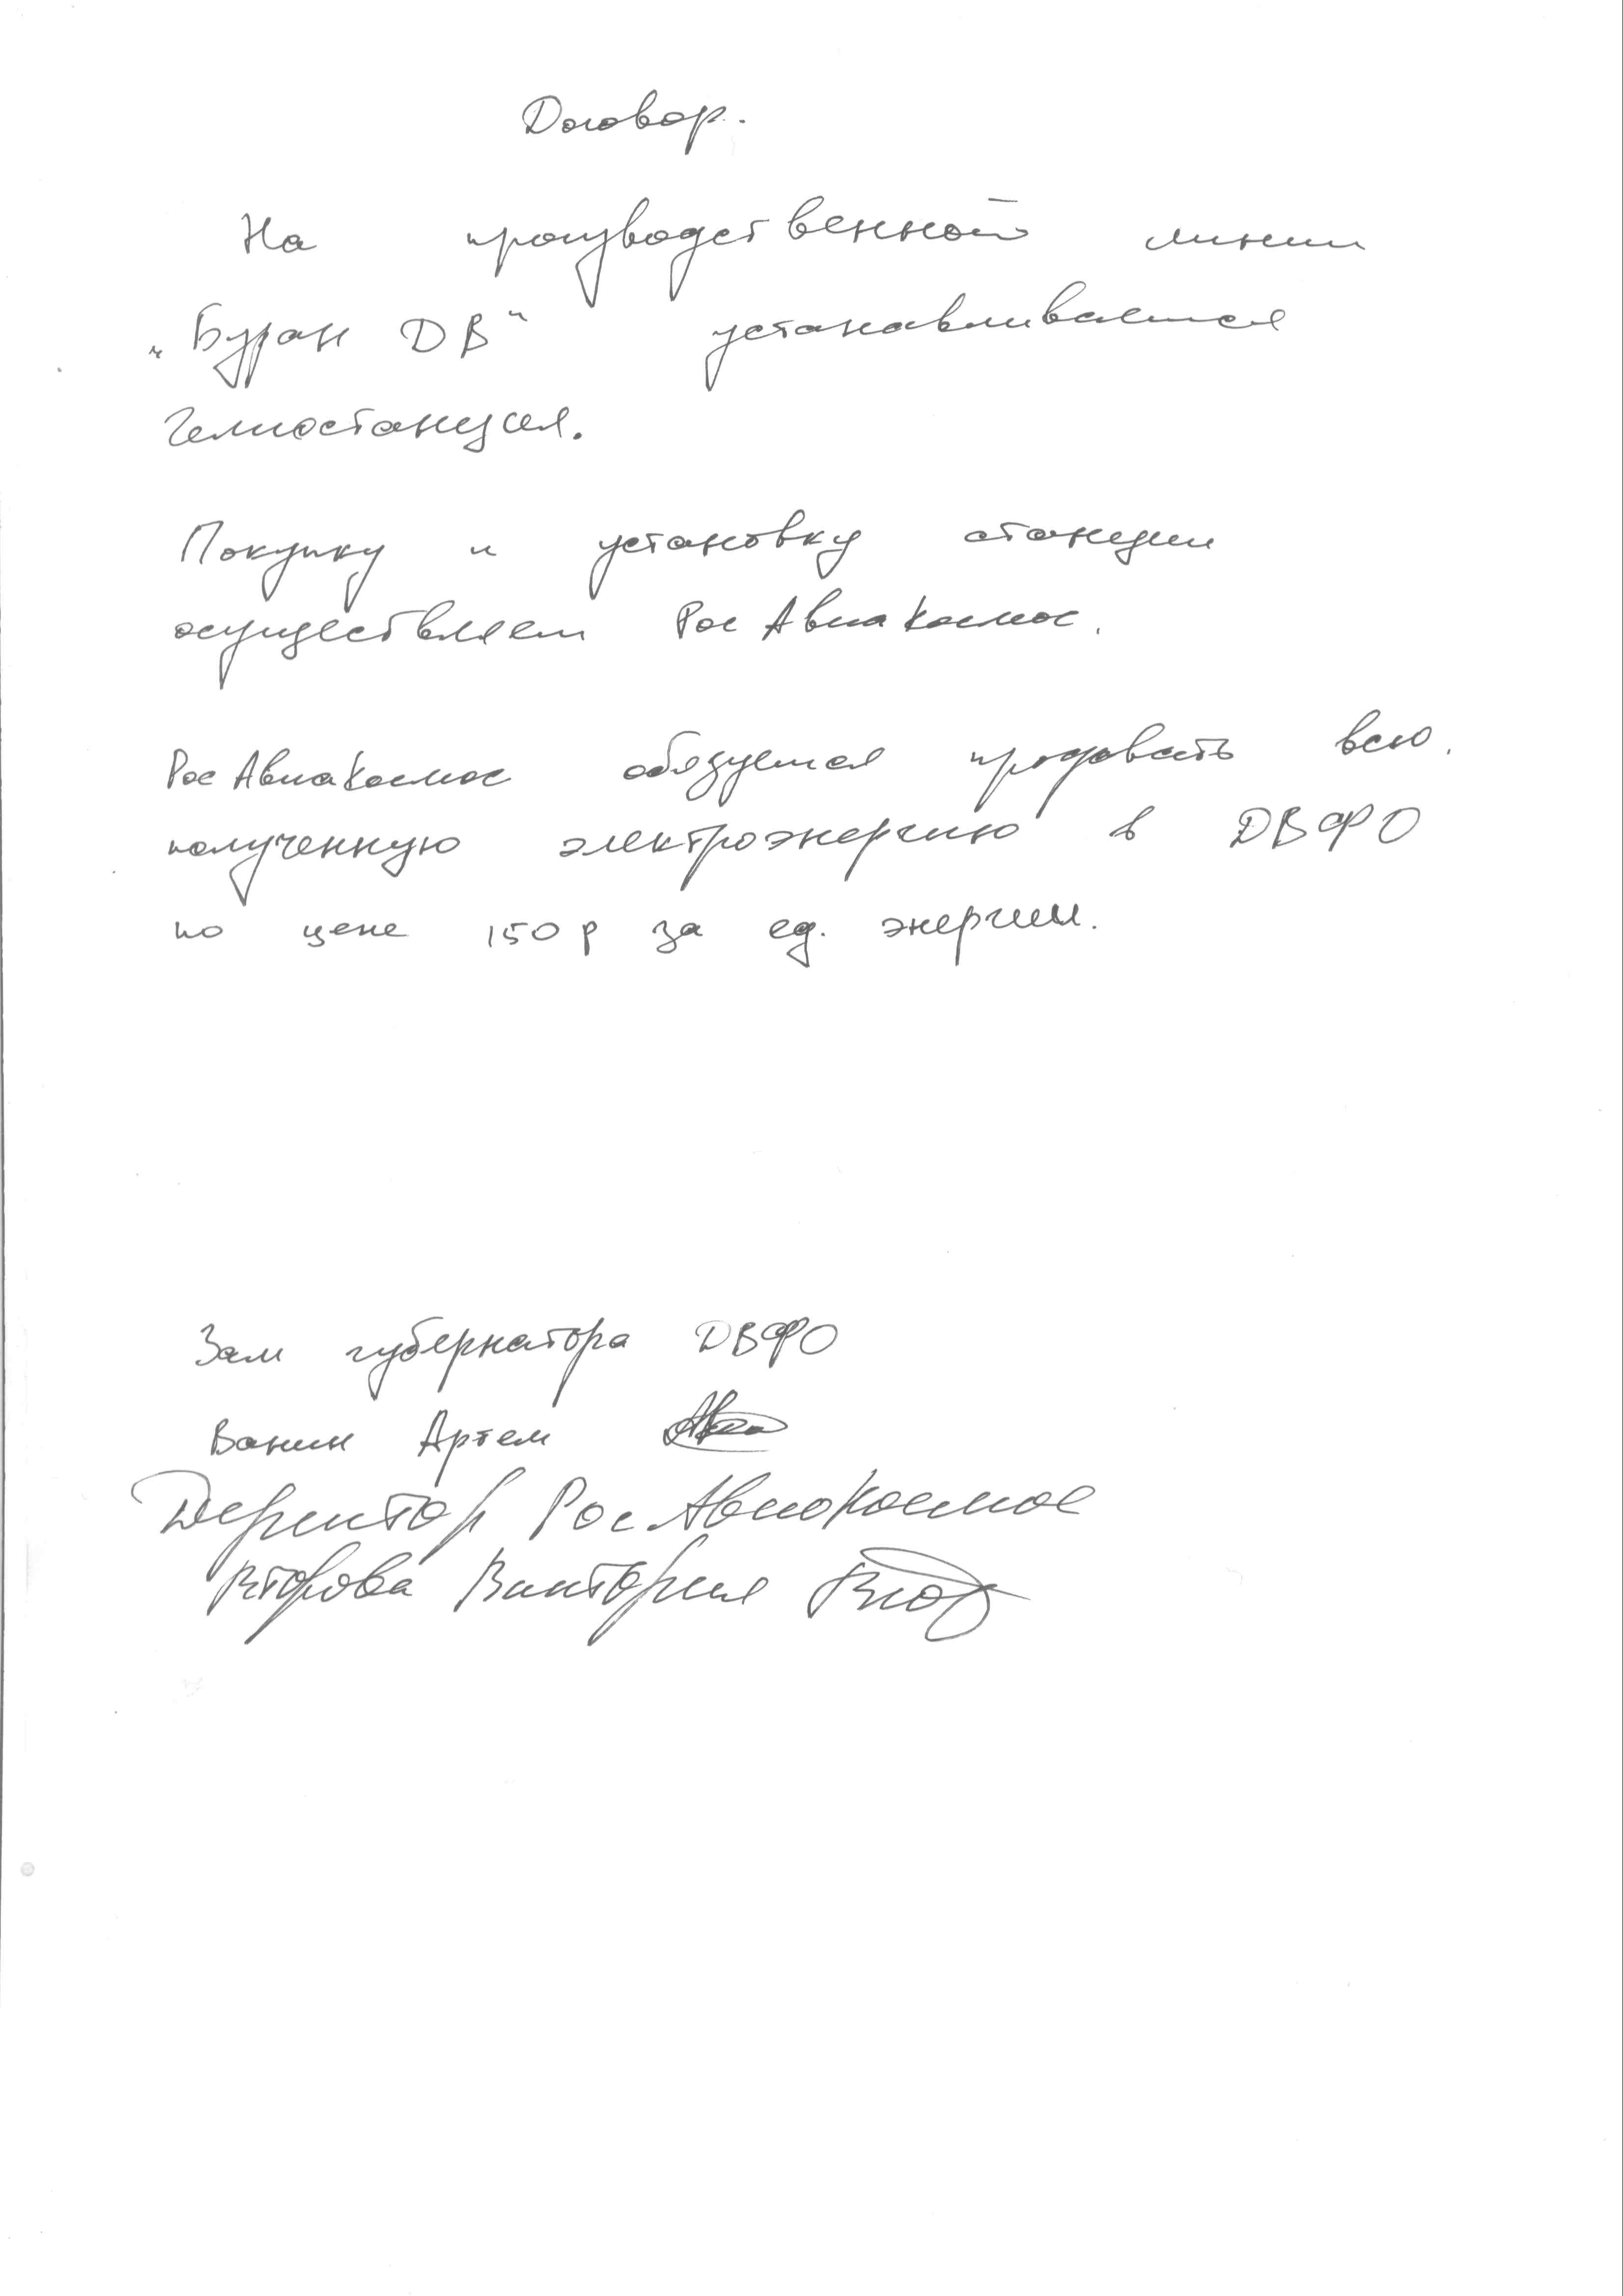 Договор.
На производственной линии
„Буран ДВ“ устанавливается
Гелиостанция.
Покупку и установку станции
осуществляет РосАвиаКосмос.
РосАвиаКосмос обязуется продовать всю
полученную электроэнергию в ДВФО
по цене 150р за ед. энергии.
Зам губернатора ДВФО
Ванин Артем
Деректор РосАвиоКосмос
Второва Виктория